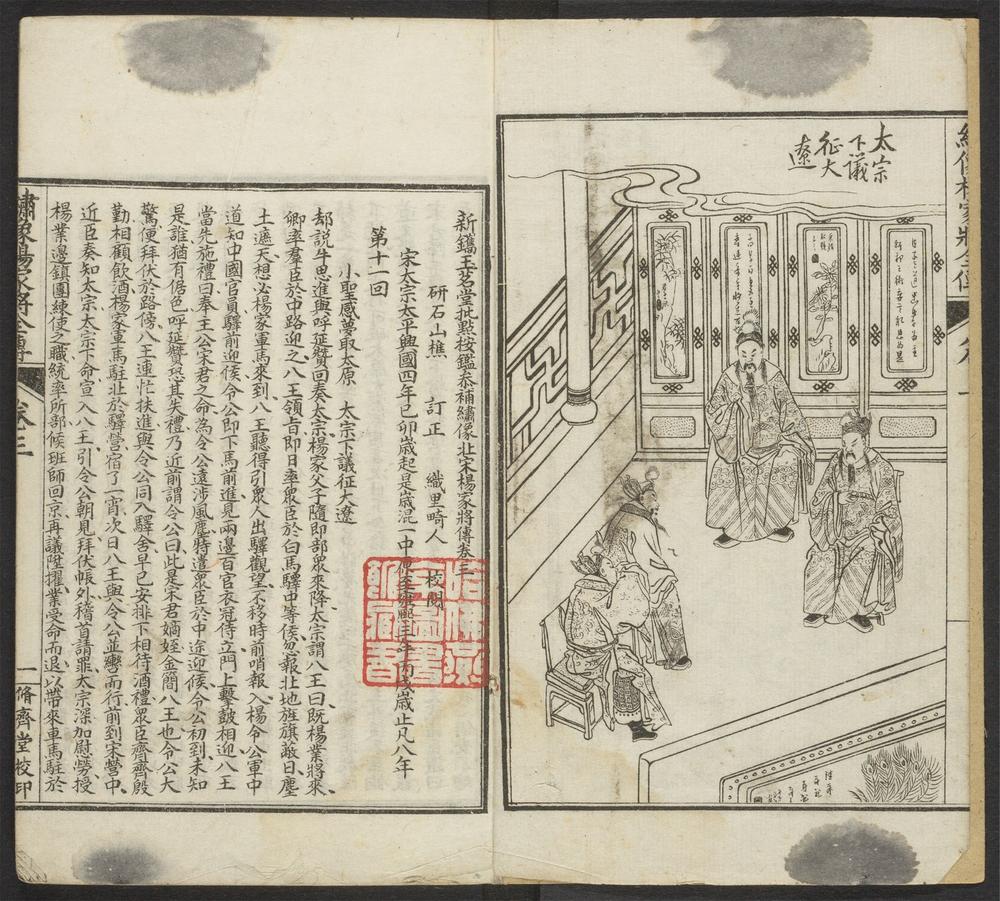 太宗
下議
征大
遼
新鐫玉茗堂批點按鑑參補繡像北宋楊家將傳卷三
研石山樵　訂正　織里畸人　校閱
宋太宗太平興國四年己卯歲起是歲混一中原至
歲止凡八年
第十一回
小聖感夢取太原　太宗下議征大遼
却說牛思進與呼延贊回奏太宗楊家父子隨即部衆來降太宗謂八王曰既楊業將來
卿率羣臣於中路迎之八王領旨即日率衆臣於白馬驛中等候忽報北地旌旗蔽日塵
土遮天想必楊家軍馬來到八王聽得引衆人出驛觀望不移時前哨報入楊令公軍中
道知中國官員驛前迎候令公即下馬前進見兩邊百官衣冠侍立門上擊鼓相迎八王
當先施禮曰奉主公宋君之命為令公遠涉風塵特遣眾臣於中途迎候令公初到未知
是誰猶有倨色呼延贊恐其失禮乃近前謂令公曰此是宋君嫡姪金簡八王也令公大
驚便拜伏於路傍八王連忙扶進與令公同入驛舍早已安排下相待酒禮眾臣齊齊殷
勤相顧飲酒楊家軍馬駐扯於驛營宿了一宵次日八王與令公並轡而行前到宋營中
近臣奏知太宗太宗下命宣入八王引令公朝見拜伏帳外稽首請罪太宗深加慰勞授
楊業邊鎮團練使之職統率所部候班師回京再議陞擢業受命而退以帶來車馬駐於
繡像楊家將全傳
卷三
一
脩齊堂校印